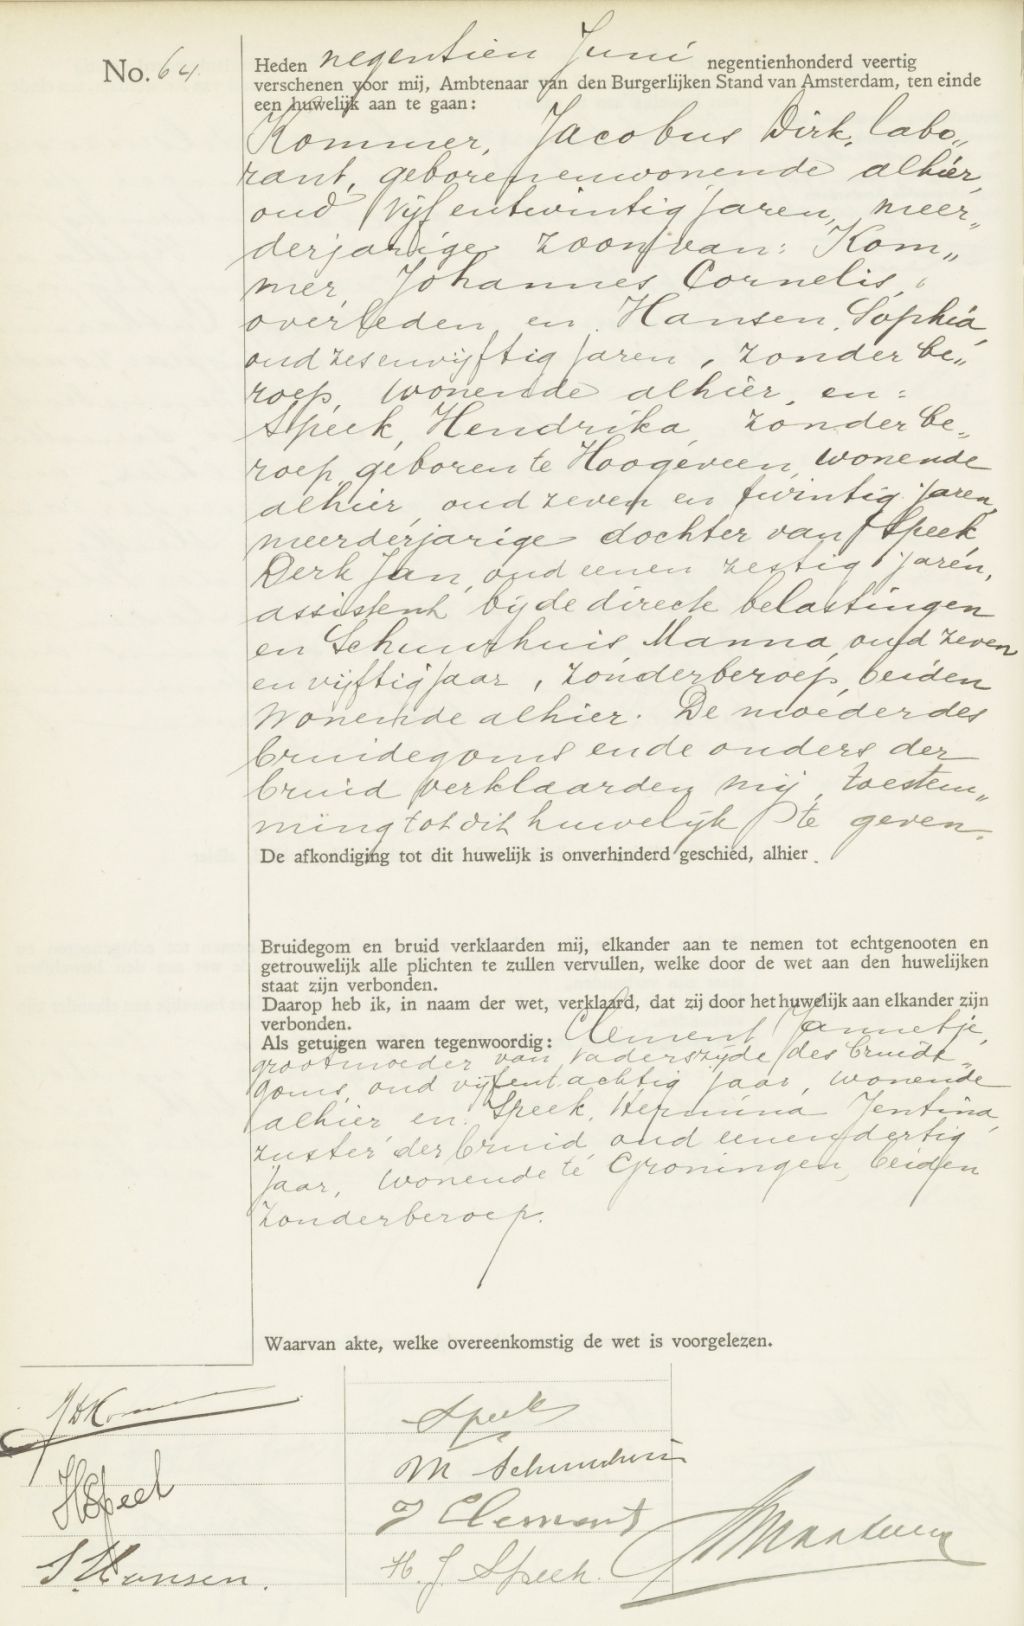 No. 64
Heden negentien Juni negentienhonderd veertig
verschenen voor mij, Ambtenaar van den Burgerlijken Stand van Amsterdam, ten einde
een huwelijk aan te gaan:
Kommer, Jacobus Dirk, labo„
rant, geboren en wonende alhier,
oud vijf en twintig jaren, meer„
derjarige zoon van: Kom„
mer, Johannes Cornelis,
overleden en Hansen, Sophia,
oud zes en vijftig jaren, zonder be„
roep, wonende alhier, en:
Speek, Hendrika, zonder be„
roep, geboren te Hoogeveen, wonende
alhier, oud zeven en twintig jaren,
meerderjarige dochter van Speek
Derk Jan, oud eenen zestig jaren,
assistent bij de directe belastingen
en Schuurhuis Manna, oud zeven
en vijftig jaar, zonder beroep, beiden
wonende alhier. De moeder des
bruidegoms en de ouders der
bruid verklaarden mij, toestem„
ming tot dit huwelijk te geven.
De afkondiging tot dit huwelijk is onverhinderd geschied, alhier.
Bruidegom en bruid verklaarden mij, elkander aan te nemen tot echtgenooten en
getrouwelijk alle plichten te zullen vervullen, welke door de wet aan den huwelijken
staat zijn verbonden.
Daarop heb ik, in naam der wet, verklaard, dat zij door het huwelijk aan elkander zijn
verbonden.
Als getuigen waren tegenwoordig: Clement Jannetje,
grootmoeder van vaderszijde des bruide„
goms, oud vijf en tachtig jaar, wonende
alhier en Speek, Hermina Jentina,
zuster der bruid oud eenen dertig
jaar, wonende te Groningen, beiden
zonder beroep.
Waarvan akte, welke overeenkomstig de wet is voorgelezen.
JDKommer
Speek
M Schuurhuis
HSpeek
J Clement
S. Hansen.
H. J. Speek.